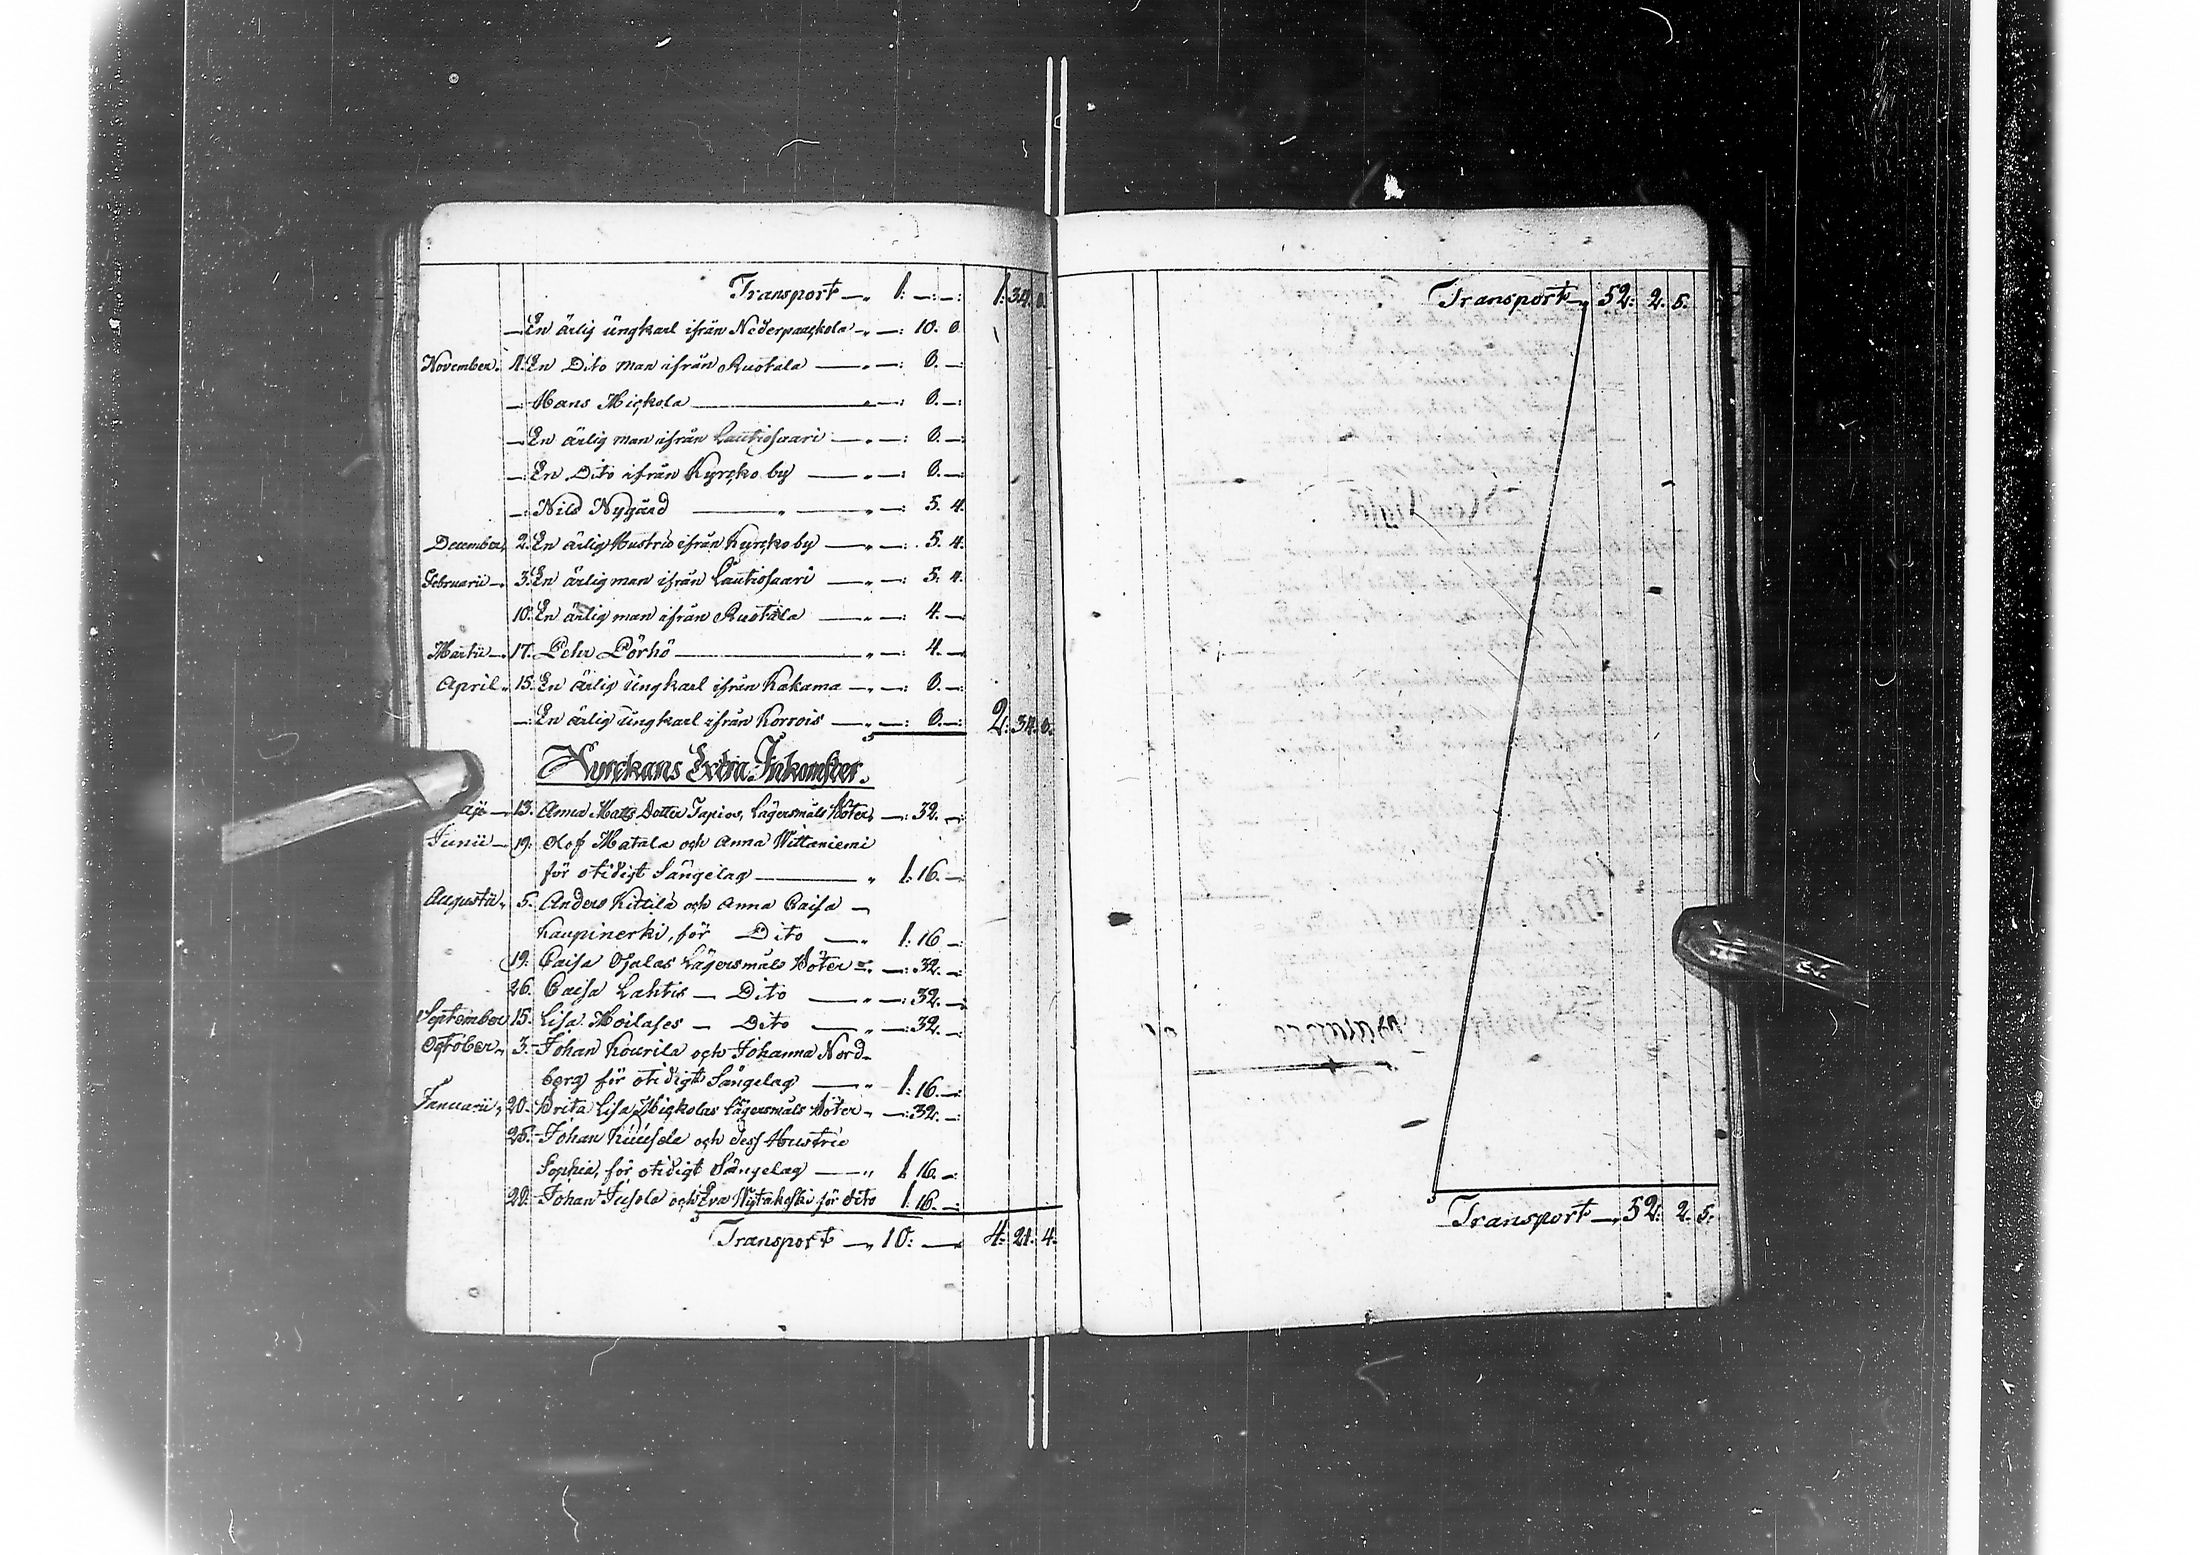 Transport —„ 1: —: —: 1: 34. 8.
— En ärlig ungkarl ifrån Nederpaackola —„ —: 10. 8
November. 11. En Dito man ifrån Ruotala —„ —: 8. —
— Hans Mickola —„ —: 8. —
— En ärlig man ifrån Lautiosaari —„ —: 8. —
— En Dito ifrån Kyrcko by —„ —: 8. —
— Nils Nygård —„ —: 5. 4.
December, 2. En ärlig Hustru ifrån Kyrcko by —„ —: 5. 4.
Februarii —, 3. En ärlig man ifrån Lautiosaari —„ —: 5. 4.
10. En ärlig man ifrån Ruotala —„ —: 4. —
Martii —, 17. Pehr Pörhö —„ —: 4. —
April „ 15. En ärlig ungkarl ifrån Kakama —„ —: 8. —
— En ärlig ungkarl ifrån Korrois —„ —: 8. —: 2: 34. 8.
Kyrckans Extra Inkomster.
13. Anna Matts Dotter Tapios, Lägersmåls Böter, —: 32. —
Junii — 19. Olof Matala och Anna Wittaniemi
för otidigt Sängelag —„ 1: 16. —
Augustii, 5. Anders Kittilä och Anna Caisa —
Kaupinerki, för Dito —„ 1: 16 —
19. Caisa Ojalas Lägersmåls Böter —: 32. —
26. Caisa Lahtis — Dito —„ —: 32. —
September 15. Lisa Moilases — Dito —„ —: 32. —
October „ 3. Johan Kourila och Johanna Nord-
berg för otidigt Sängelag —„ 1: 16. —
Januarii, 20. Brita Lisa Mickolas Lägersmåls Böter — —: 32. —
Johan Kuusela och dess Hustru
Sophia, för otidigt Sängelag —„ 1 16. —
Johan Jusola och Eva Wytakoski för dito 1: 16. —
Transport —„ 10: — 4: 21. 4.
Transport —„ 52: 2. 5.
Transport —, 52: 2. 5.